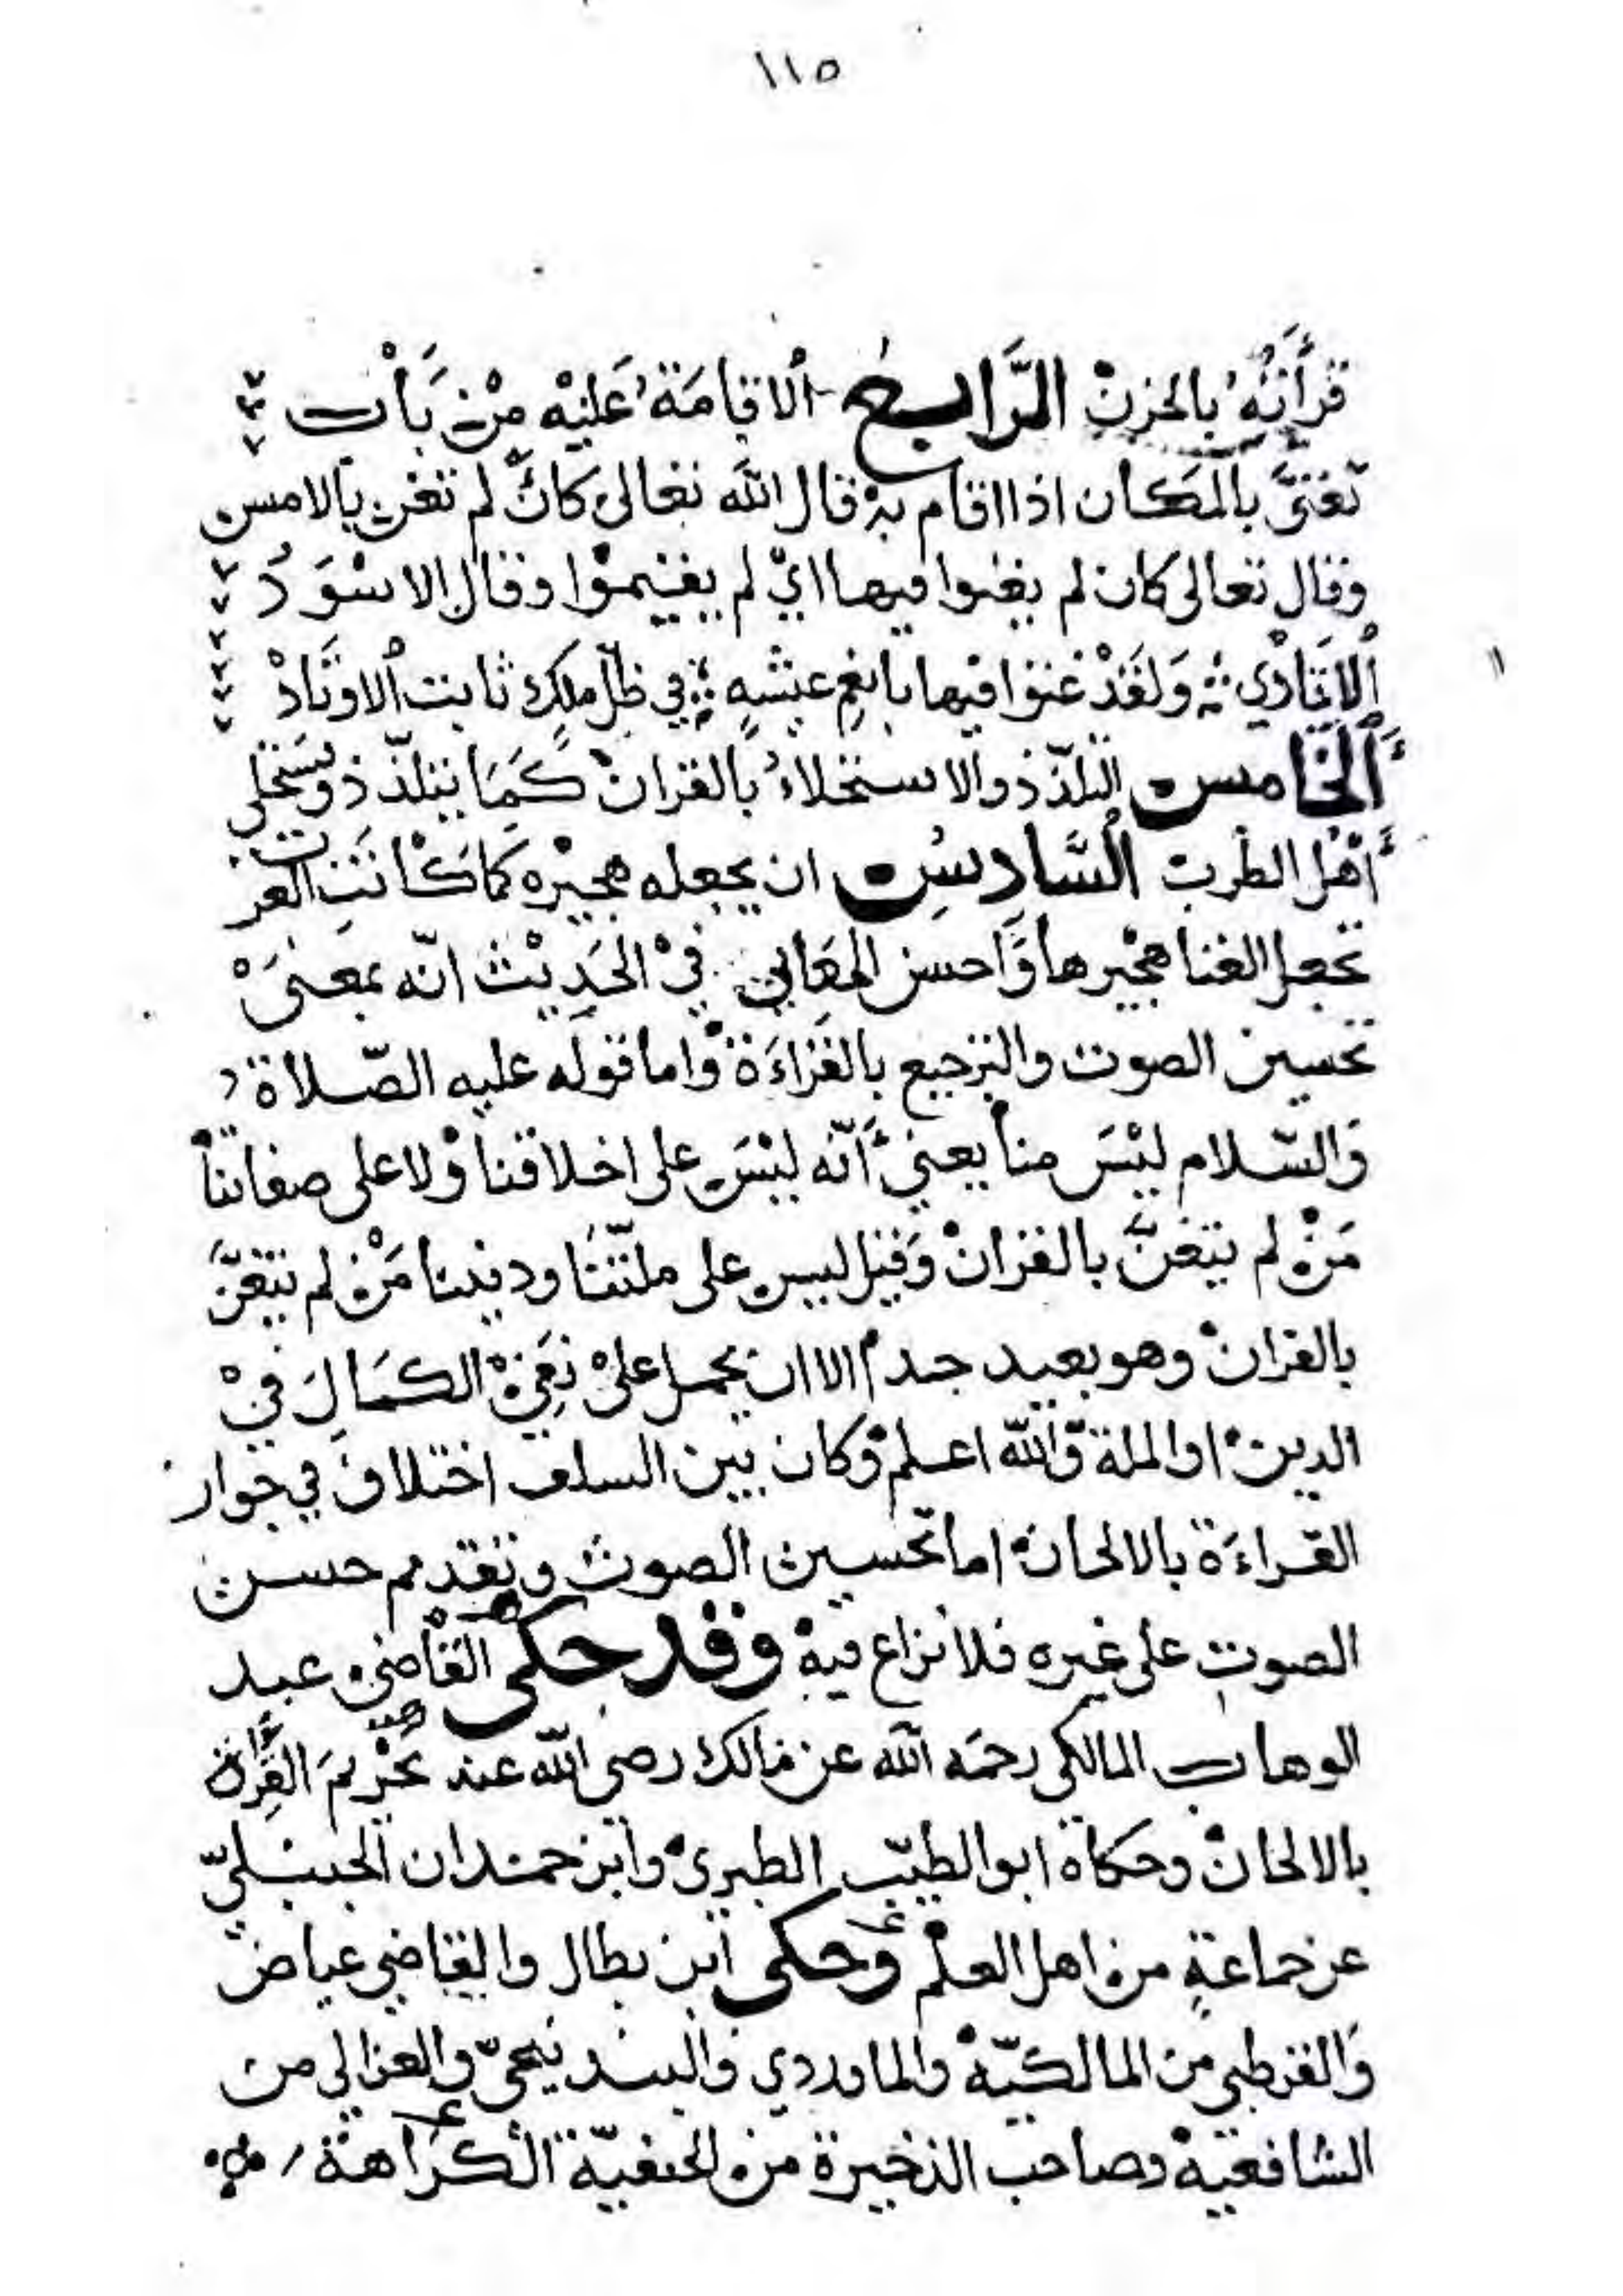 ١١٥
قرأته بالحزن الرابع الاقامة عليه من باب
تغنى بالمكان اذا اقام به قال الله تعالى كان لم تغن بالامس
وقال تعالى كان لم يغنوا فيها اي لم يقيموا وقال الاسود
الايادي ولقد غنوا فيها بانعم عيشه في ظل ملك ثابت الاوتاد
الخامس التلذذ والاستحلاء بالقران كما يتلذذ ويستحلي
اهل الطرب السادس ان يجعله هجيره كما كانت العرب
تجعل الغنا هجيرها واحسن المعاني في الحديث انه بمعنى
تحسين الصوت والترجيع بالقراءة واما قوله عليه الصلاة
والسلام ليس منا يعني انه ليس على اخلاقنا ولا على صفاتنا
من لم يتغن بالقران وقيل ليس على ملتنا وديننا من لم يتغن
بالقران وهو بعيد جدا الا ان يحمل على نفي الكمال في
الدين او الملة والله اعلم وكان بين السلف اختلاف في جواز
القراءة بالالحان اما تحسين الصوت وتقديم حسن
الصوت على غيره فلا نزاع فيه وقد حكى القاضي عبد
الوهاب المالكي رحمه الله عن مالك رضي الله عنه تحريم القراة
بالالحان وحكاه ابو الطيب الطبري وابن حمدان الحنبلي
عن جماعة من اهل العلم وحكى ابن بطال والقاضي عياض
والقرطبي من المالكية والماوردي والبندنيجي والغزالي من
الشافعية وصاحب الذخيرة من الحنفية الكراهة